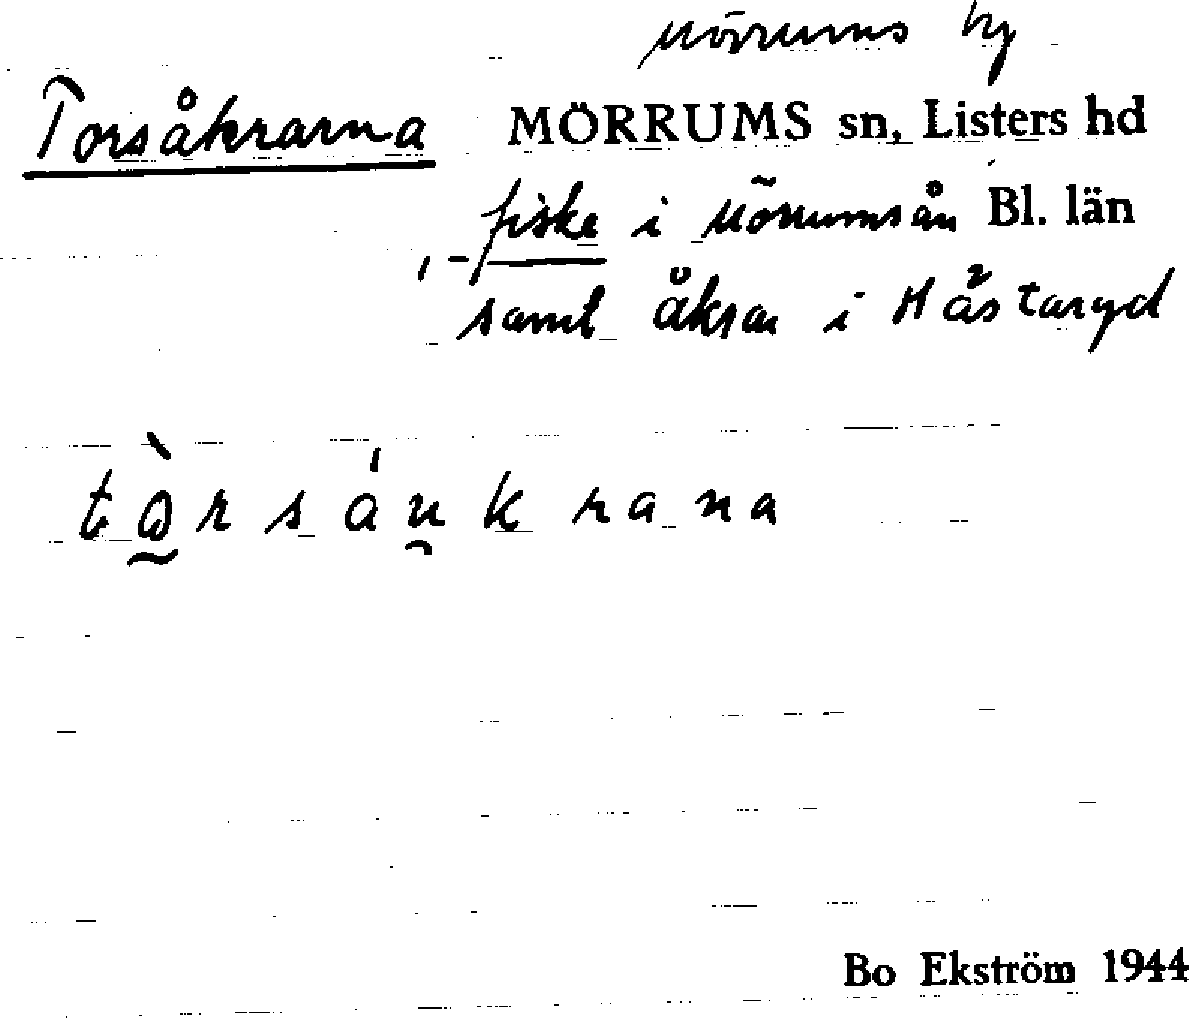 Mörrums by
Torsåkrarna MÖRRUMS sn, Listers hd
fiske i Mörrumsån Bl. län
samt åkrar i Håstaryd
tò̰rsáu̯krana
Bo Ekström 1944